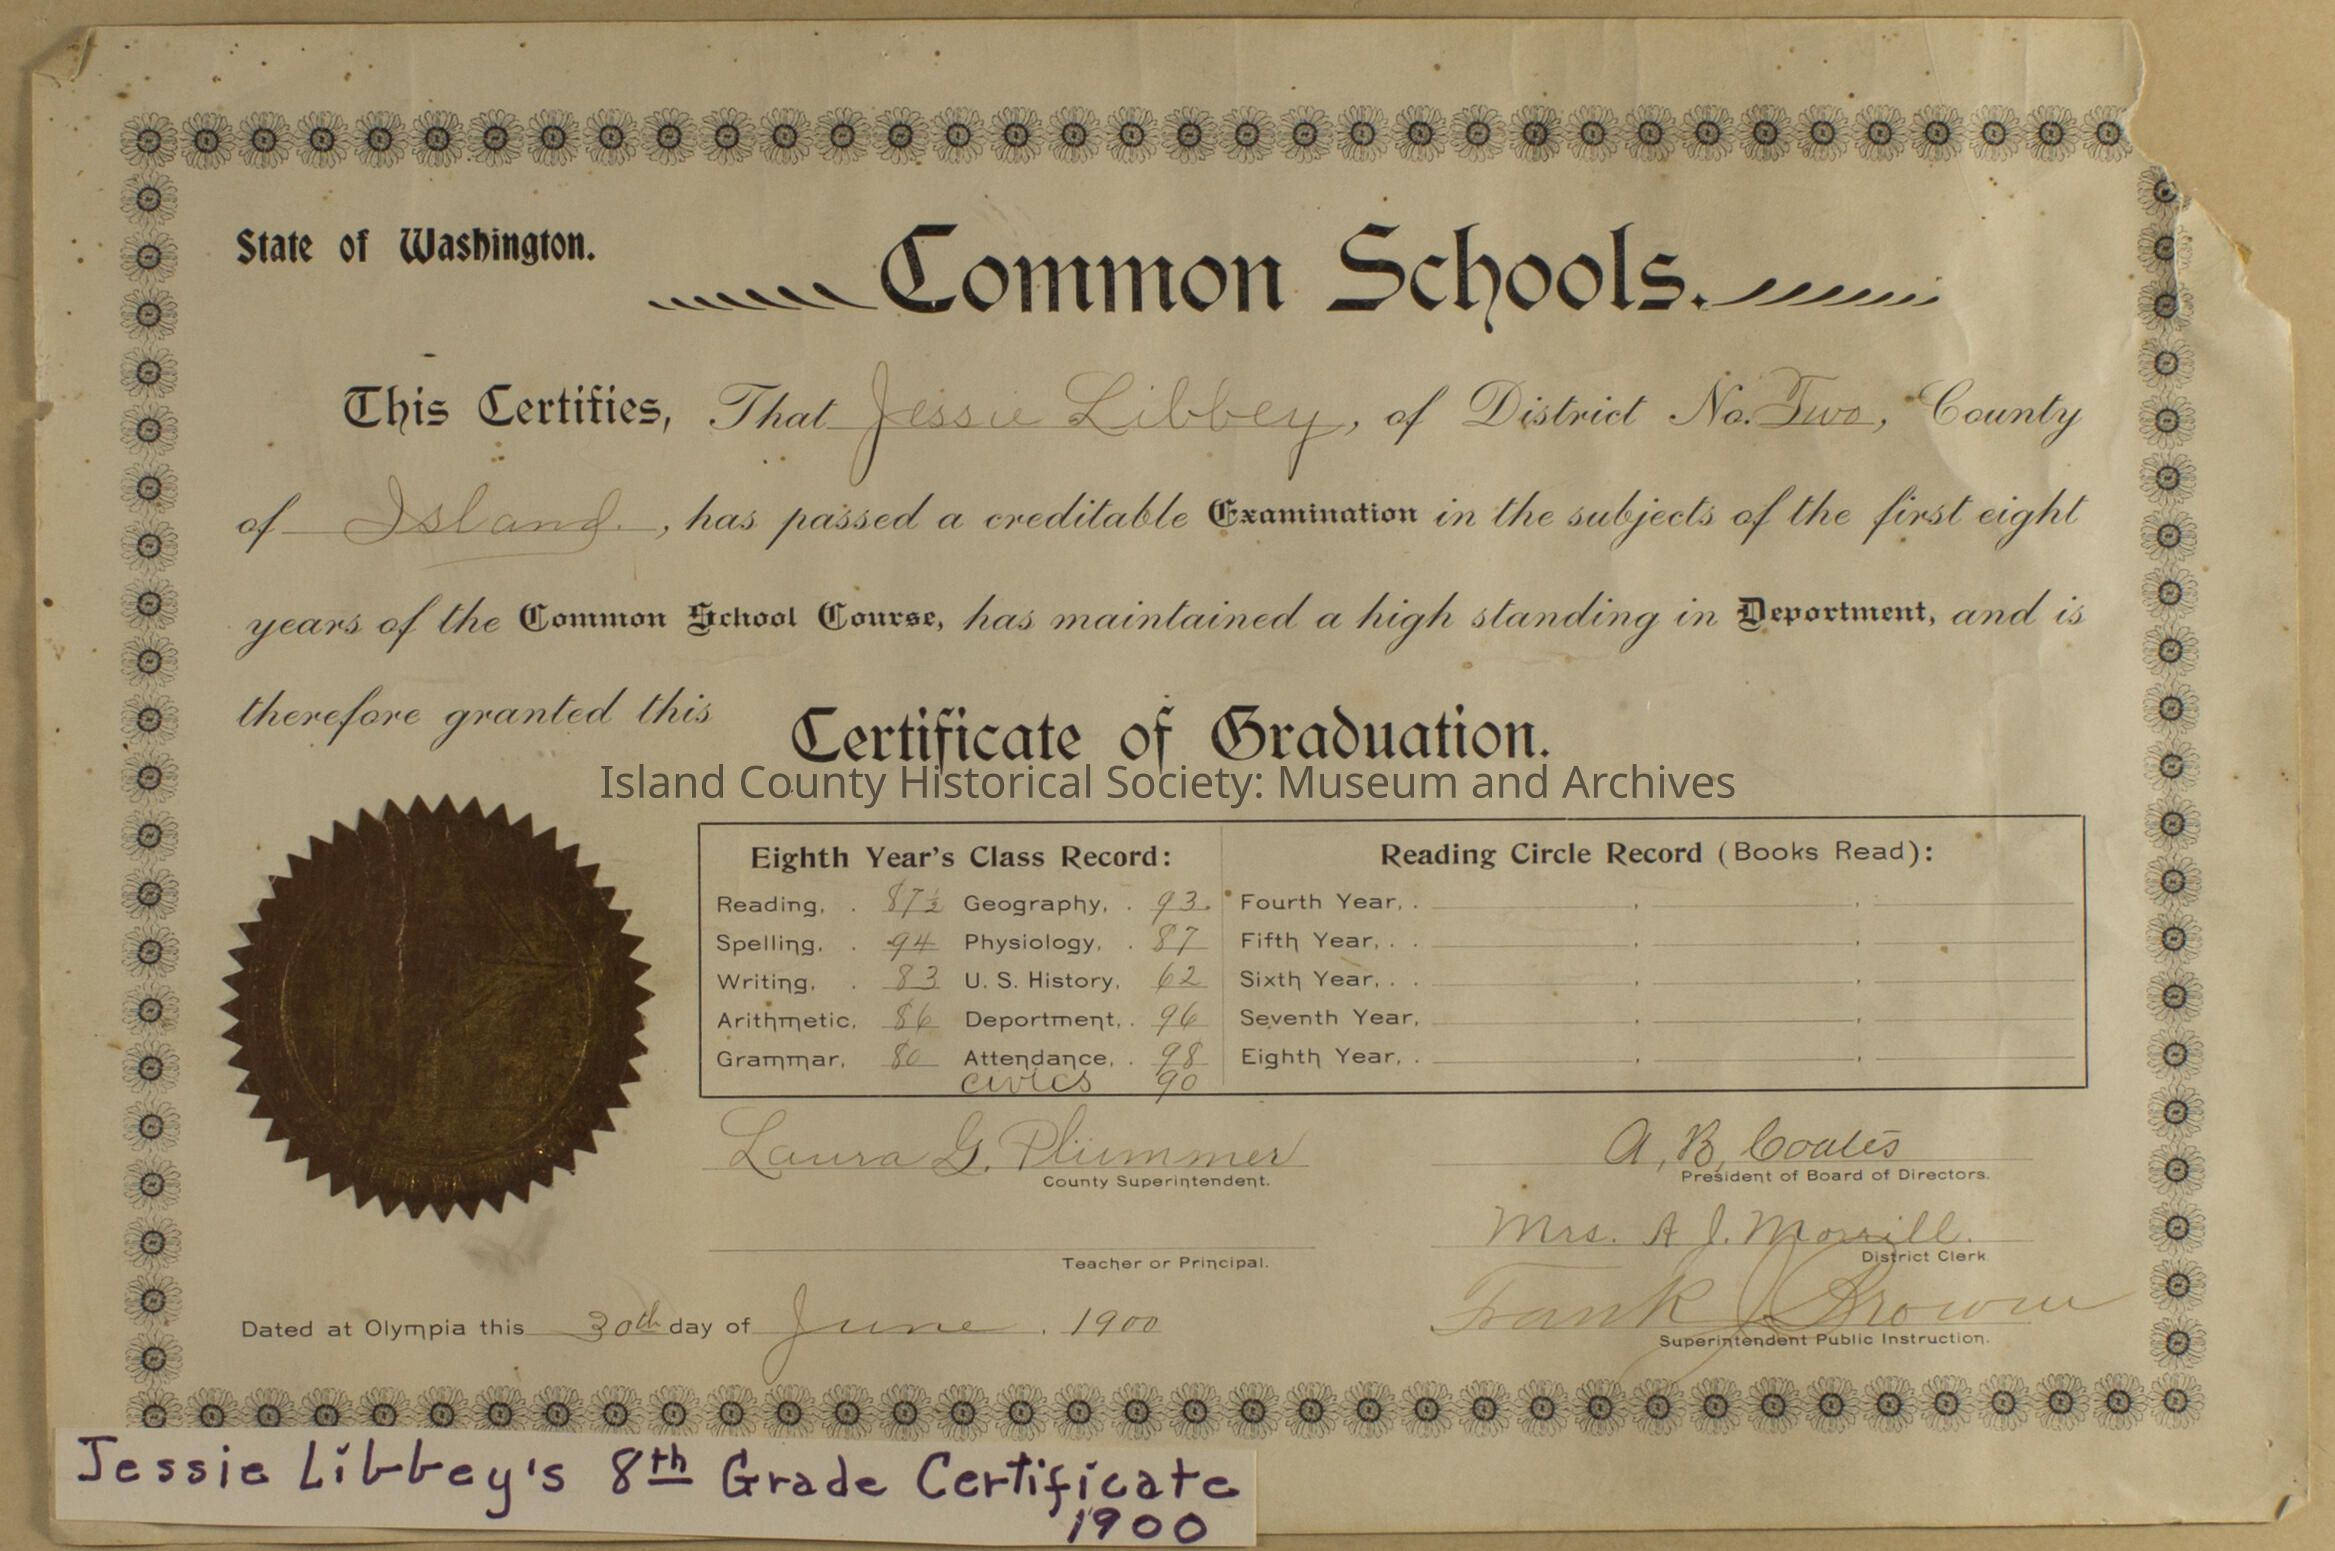 State of Washington.
Common Schools.
This Certifies, That Jessie Libbey, of District No. Two, County
of Island, has passed a creditable Examination in the subjects of the first eight
years of the Common School Course, has maintained a high standing in Deportment, and is
therefore granted this
Certificate of Graduation.
Island County Historical Society: Museum and Archives
Eighth Year's Class Record:
Reading, . 87½ Geography, . 93.
Spelling, . 94 Physiology, . 87
Writing, . 83 U. S. History, 62
Arithmetic, 86 Deportment, . 96
Grammar, 80 Attendance, . 98
civics 90
Reading Circle Record (Books Read):
Fourth Year, .
Fifth Year, . .
Sixth Year, . .
Seventh Year,
Eighth Year, .
Laura G. Plummer
County Superintendent.
A. B. Coates
President of Board of Directors.
Teacher or Principal.
Mrs. A J. Morrill.
District Clerk
Dated at Olympia this 30th day of June, 1900
Frank J Browne
Superintendent Public Instruction.
Jessie Libbey's 8th Grade Certificate
1900